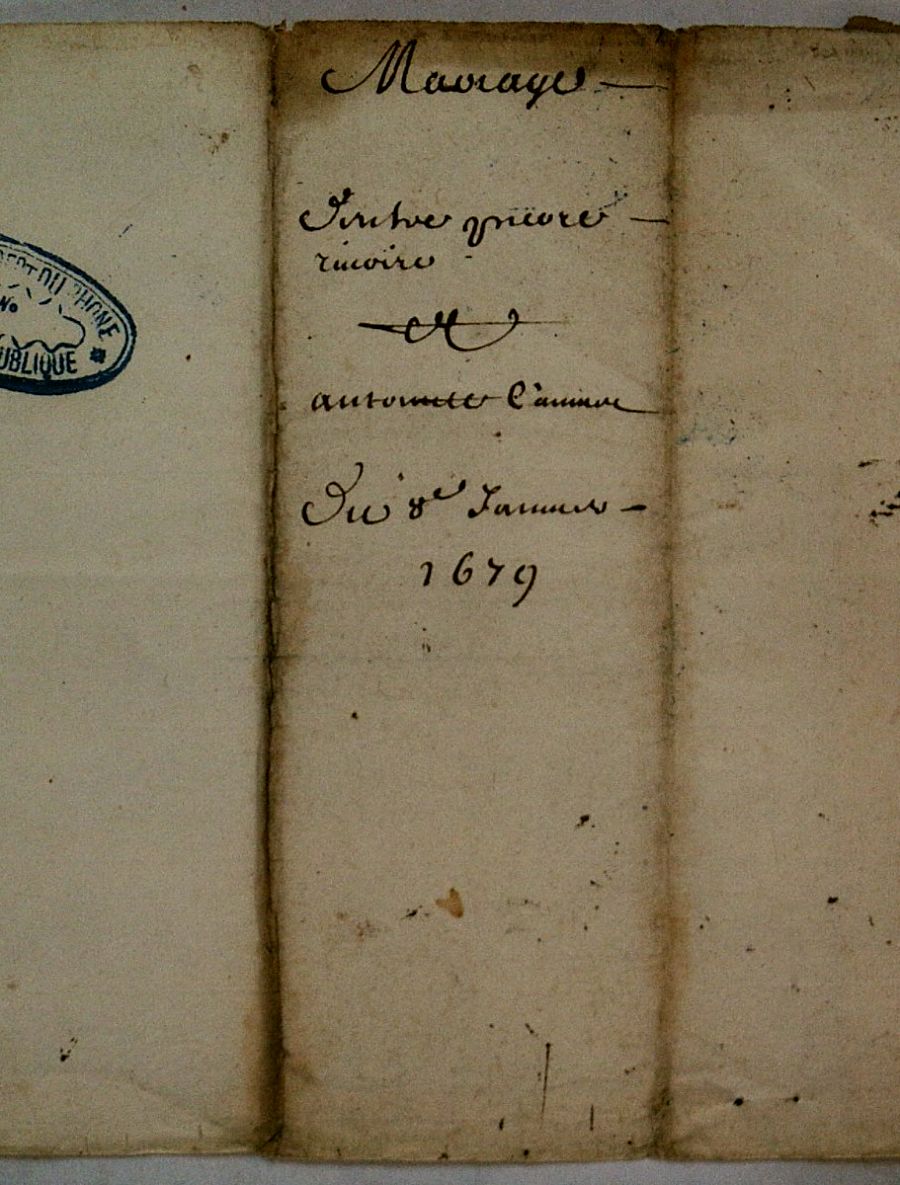 Mariage
Entre pierre
rivoire
et
antoinette
Du 8e Janvier
1679
DU RHONE
No
UBLIQUE